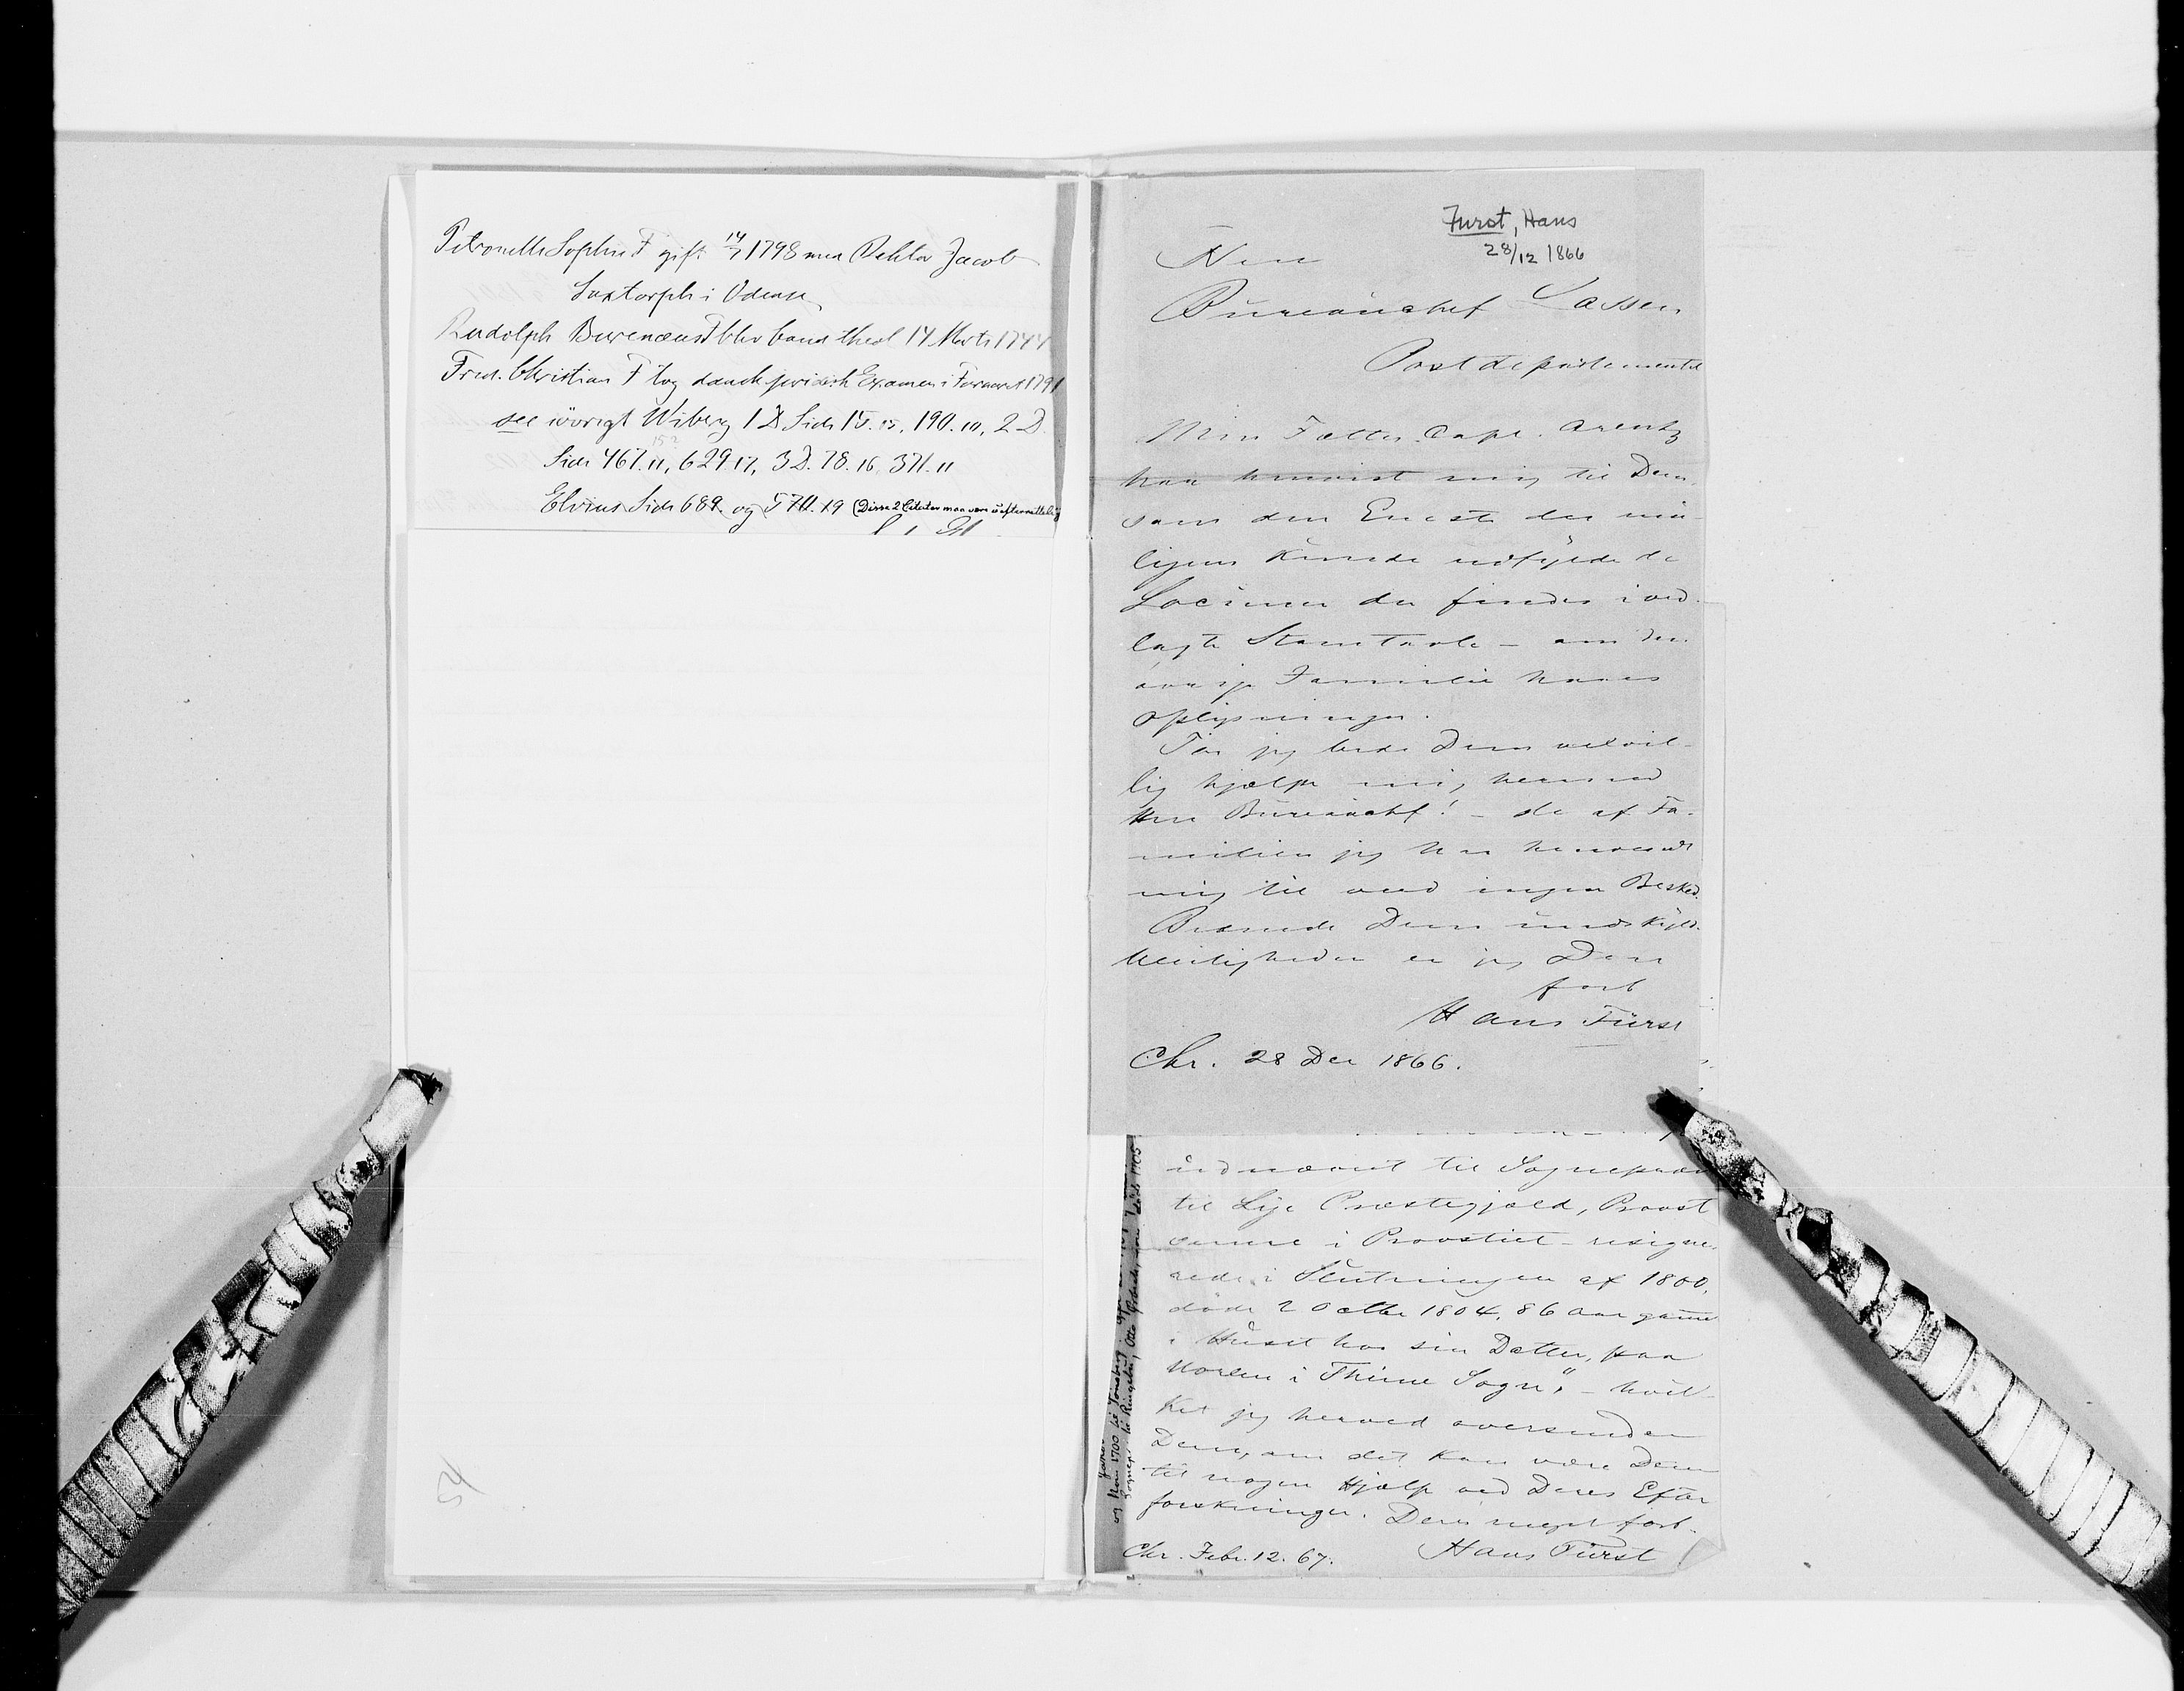 Petronelle Sophie F gift 14/7 1798 med Rektor Jacob
Saxtorph i Odense
Rudolph Burenæus F blev cand theol 14 Marts 1744
Fred. Christian F tog dansk juridisk Examen i Foraaret 1791
see iövrigt Wiberg 1 D Side 15. 15, 190. 10, 2 D.
Side 467. 11, 629 17, 3 D. 78. 16, 371. 11
15?
Elvius Side 689. og 570. 19 (Disse 2 Citater maa være uefterrettelig
54
Furst, Hans
28/12 1866
Herr
Büreauchef Lassen
Postdepartementet
Min Fætter Capt. Arentz
har henvist mig til Dem,
som den Eneste der mü-
ligens kunde udfylde de
Lacüner der findes i ved-
lagte Stamtavle – om den
øvrige Familie haves
Oplysninger.
Tør jeg bede Dem velvil-
lig hjælpe mig hermed
Herr Büreauchef! – de af Fa-
milien jeg har henvendt
mig til ved ingen Besked.
Bedende Dem undskyld-
Uleiligheden er jeg Deres
forb
Hans Fürst
Chr. 28 Dec 1866.
üdnævnt til Sognepræst
til Lye Præstegjæld, Provst
samme i Provstiet – resigne-
rede i Slutningen af 1800,
døde 2 Octbr 1804, 86 Aar gamel
i Huset hos sin Datter, paa
Norem i Thime Sogn", – hvil-
ket jeg herved oversender
Dem, om det kan være Dem
til nogen Hjælp ved Deres Efter
forskninger. Deres meget forb.
Chr. Febr. 12. 67. Hans Fürst
og kom 1700 til Tønsberg
Sognepr. til Ringebu, Otto døde 1705